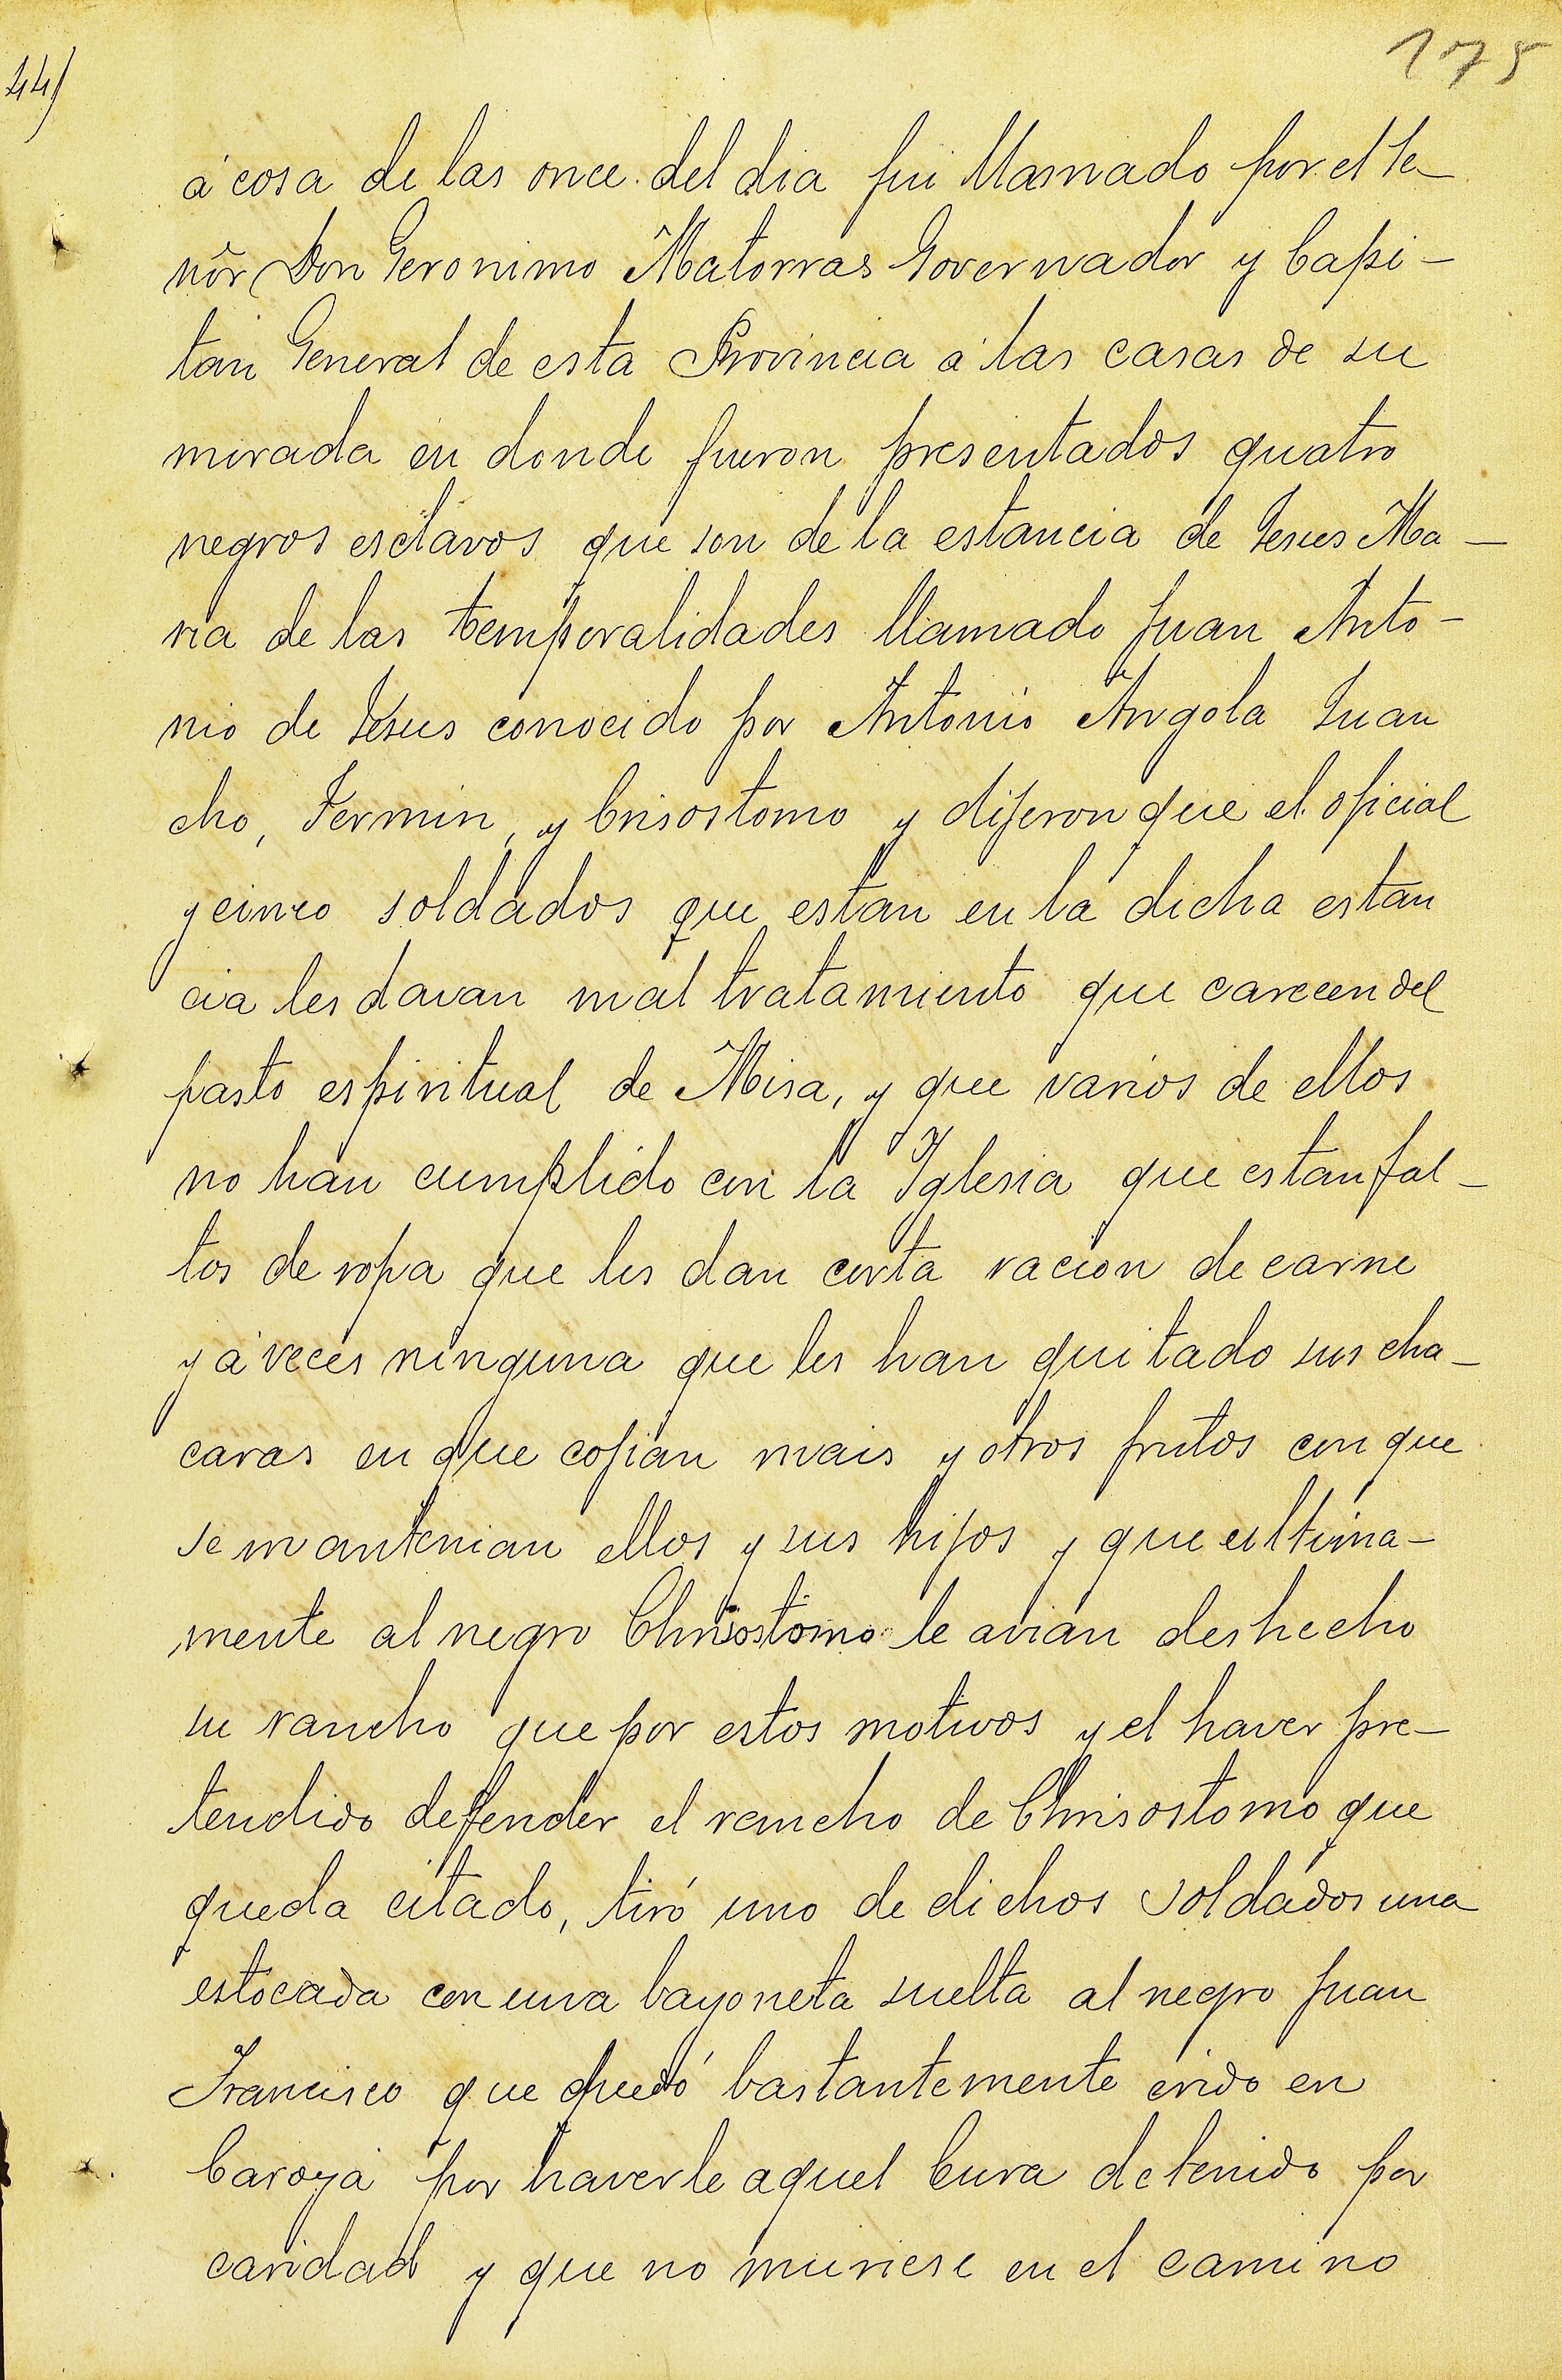 44)
175
á cosa de las once del dia fui llamado por el Se-
nôr Don Geronimo Matorras Governador y Capi-
tan General de esta Provincia á las casas de su
morada en donde fueron presentados quatro
negros esclavos que son de la estancia de Jesus Ma-
ria de las temporalidades llamado Juan Anto-
nio de Jesus conocido por Antonio Angola Juan
cho, Fermin, y Crisostomo y dijeron que el oficial
y cinco soldados que estan en la dicha estan
cia les davan mal tratamiento que carecen del
pasto espiritual de Misa, y que varios de ellos
no han cumplido con la Iglesia que estan fal-
tos de ropa que les dan corta racion de carne
y á veces ninguna que les han quitado sus cha-
caras en que cojian mais y otros frutos con que
se mantenian ellos y sus hijos y que ultima-
mente al negro Chrisostomo le avian deshecho
su rancho que por estos motivos y el haver pre-
tendido deffender el rancho de Chrisostomo que
queda citado, tiró uno de dichos soldados una
estocada con una bayoneta suelta al negro Juan
Francisco que quedó bastantemente erido en
Caroya por haverle aquel Cura detenido por
caridad y que no muriese en el camino